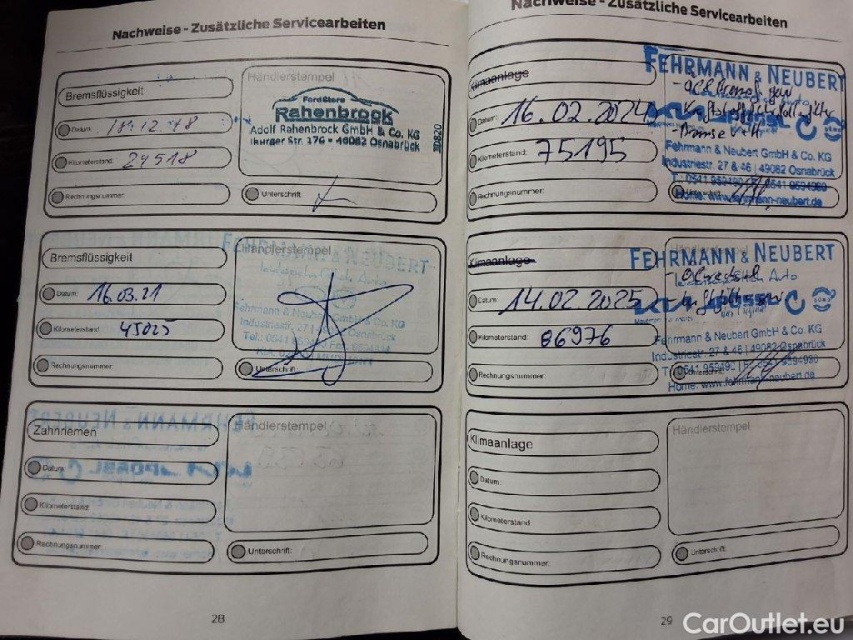 Nachweise - Zusätzliche Servicearbeiten
Bremsflüssigkeit
Datum: 18.12.18
Kilometerstand: 24518
Rechnungsnummer:
Händlerstempel
FordStore
Rahenbrock
Adolf Rahenbrock GmbH & Co. KG
Iburger Str. 176 - 49082 Osnabrück
Unterschrift:
Bremsflüssigkeit
Datum: 16.03.21
Kilometerstand: 45025
Rechnungsnummer:
Händlerstempel
FEHRMANN & NEUBERT
Fehrmann & Neubert GmbH & Co. KG
Unterschrift:
Zahnriemen
Datum:
Kilometerstand:
Rechnungsnummer:
Händlerstempel
Unterschrift:
28
Nachweise - Zusätzliche Servicearbeiten
Klimaanlage
Datum: 16.02.2024
Kilometerstand: 75195
Rechnungsnummer:
FEHRMANN & NEUBERT
Fehrmann & Neubert GmbH & Co. KG
Industriestr. 27 & 46 | 49082 Osnabrück
Home: www.fehrmann-neubert.de
Klimaanlage
Datum: 14.02.2025
Kilometerstand: 86976
Rechnungsnummer:
FEHRMANN & NEUBERT
Auto
Fehrmann & Neubert GmbH & Co. KG
Industriestr. 27 & 46 | 49082 Osnabrück
Home: www.fehrmann-neubert.de
Klimaanlage
Datum:
Kilometerstand:
Rechnungsnummer:
Händlerstempel
Unterschrift:
29
CarOutlet.eu